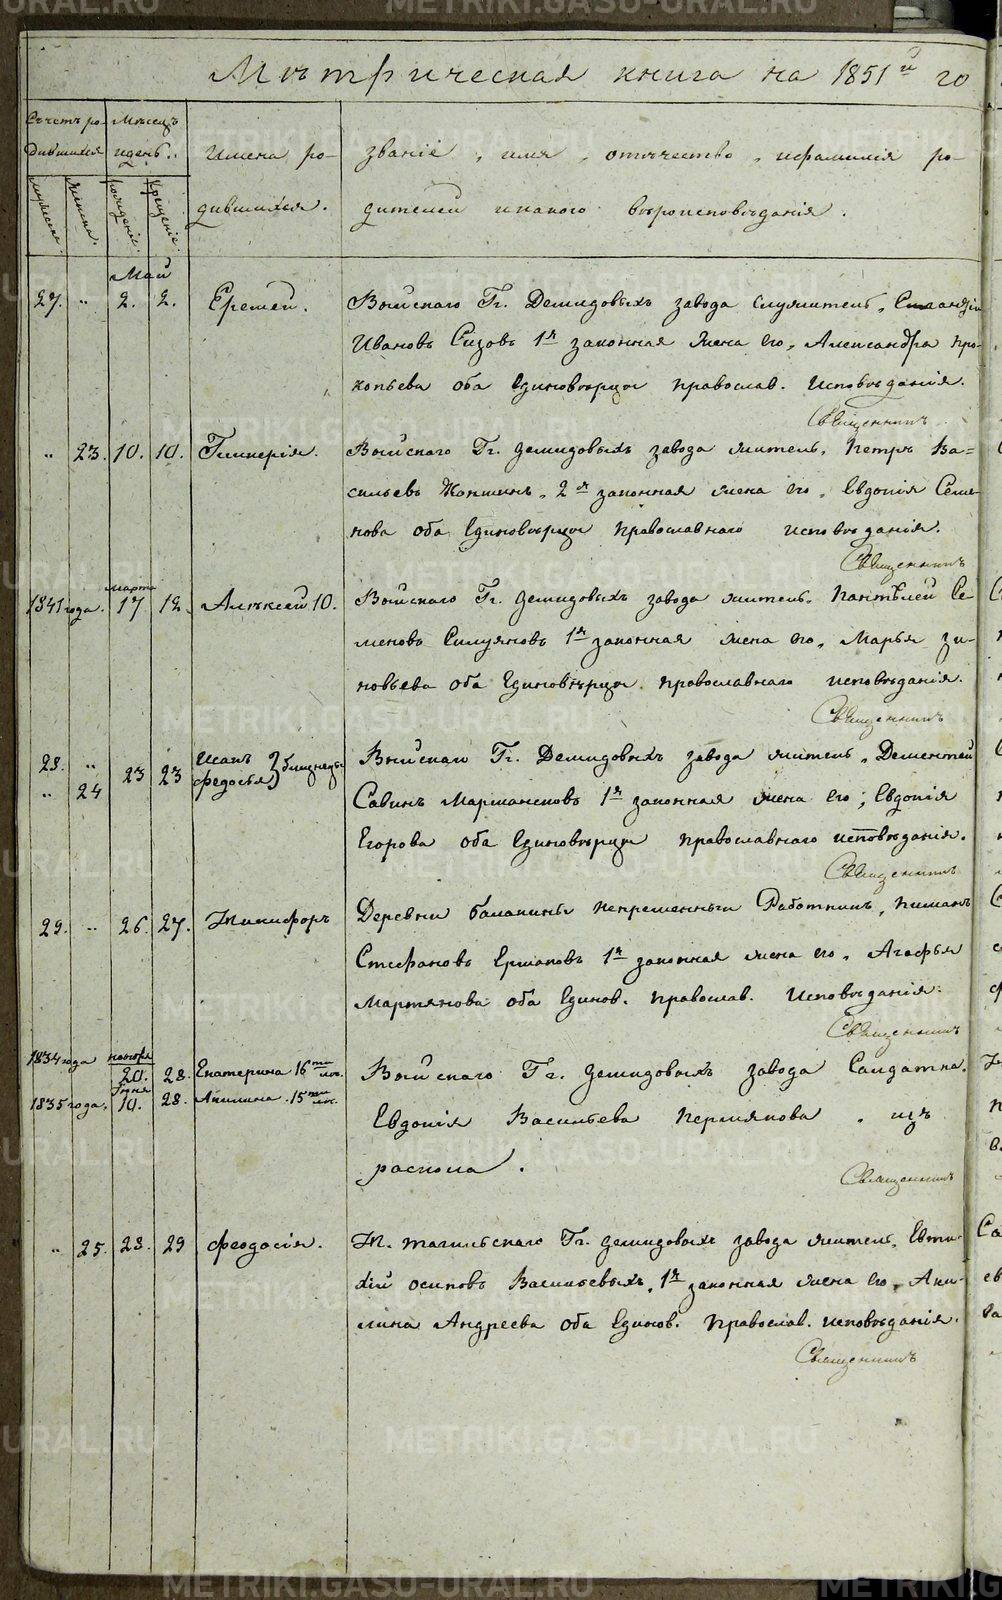 Метрическая книга на 1851й го
Счетъ ро- Мѣсяцъ
дившихся и день.
Имена ро- званіе, имя, отчество, и фамилія ро-
дившихся. дителей и какого вѣроисповѣданія.
мужеска. женска. рожденіе. крещеніе.
Май
27. " 2. 2. Еремей. Выйскаго Гг. Демидовыхъ завода служитель,
Ивановъ Сизовъ 1я законная жена его, Александра Про-
копьева оба Единовѣрцы православ. Исповѣданія.
Священникъ
" 23. 10. 10. Гликерія. Выйскаго Гг. Демидовыхъ завода житель, Петръ Ва=
сильевъ 2я законная жена его, Евдокія Семе-
нова оба Единовѣрцы Православнаго исповѣданія.
Священникъ
марта
1841 года. 17 12. Алексей 10. Выйскаго Гг. Демидовыхъ завода житель, Пантѣлей Се-
меновъ Силуяновъ 1я законная жена его, Марья Зи-
новьева оба Единовѣрцы православнаго исповѣданія.
Священникъ
28. " 23 23 Исакъ близнецы Выйскаго Гг. Демидовыхъ завода житель, Дементей
" 24 Федосья
Савинъ 1я законная жена его, Евдокія
Егорова оба Единовѣрцы православнаго исповѣданія.
Священникъ
29. " 26. 27. Никифоръ Деревни Балакины Непременный Работникъ,
Стефановъ Ермаковъ 1я законная жена его, Агафья
Мартянова оба Единов. Православ. Исповѣданія.
Священникъ
1834 года ноября
20. 28. Екатерина 16ти лѣ. Выйскаго Гг. Демидовыхъ завода Салдатка,
Іюня
1835 года. 10. 28. Акилина. 15ти лѣ.
Евдокія Васильева Пермякова, изъ
раскола.
Священникъ
" 25. 28. 29 Феодосія. Н. тагильскаго Гг. Демидовыхъ завода житель, Евти-
хій Осиповъ Васильевыхъ, 1я законная жена его, Аки-
лина Андреева оба Единов. Православ. исповѣданія.
Священникъ
METRIKI.GASO-URAL.RU